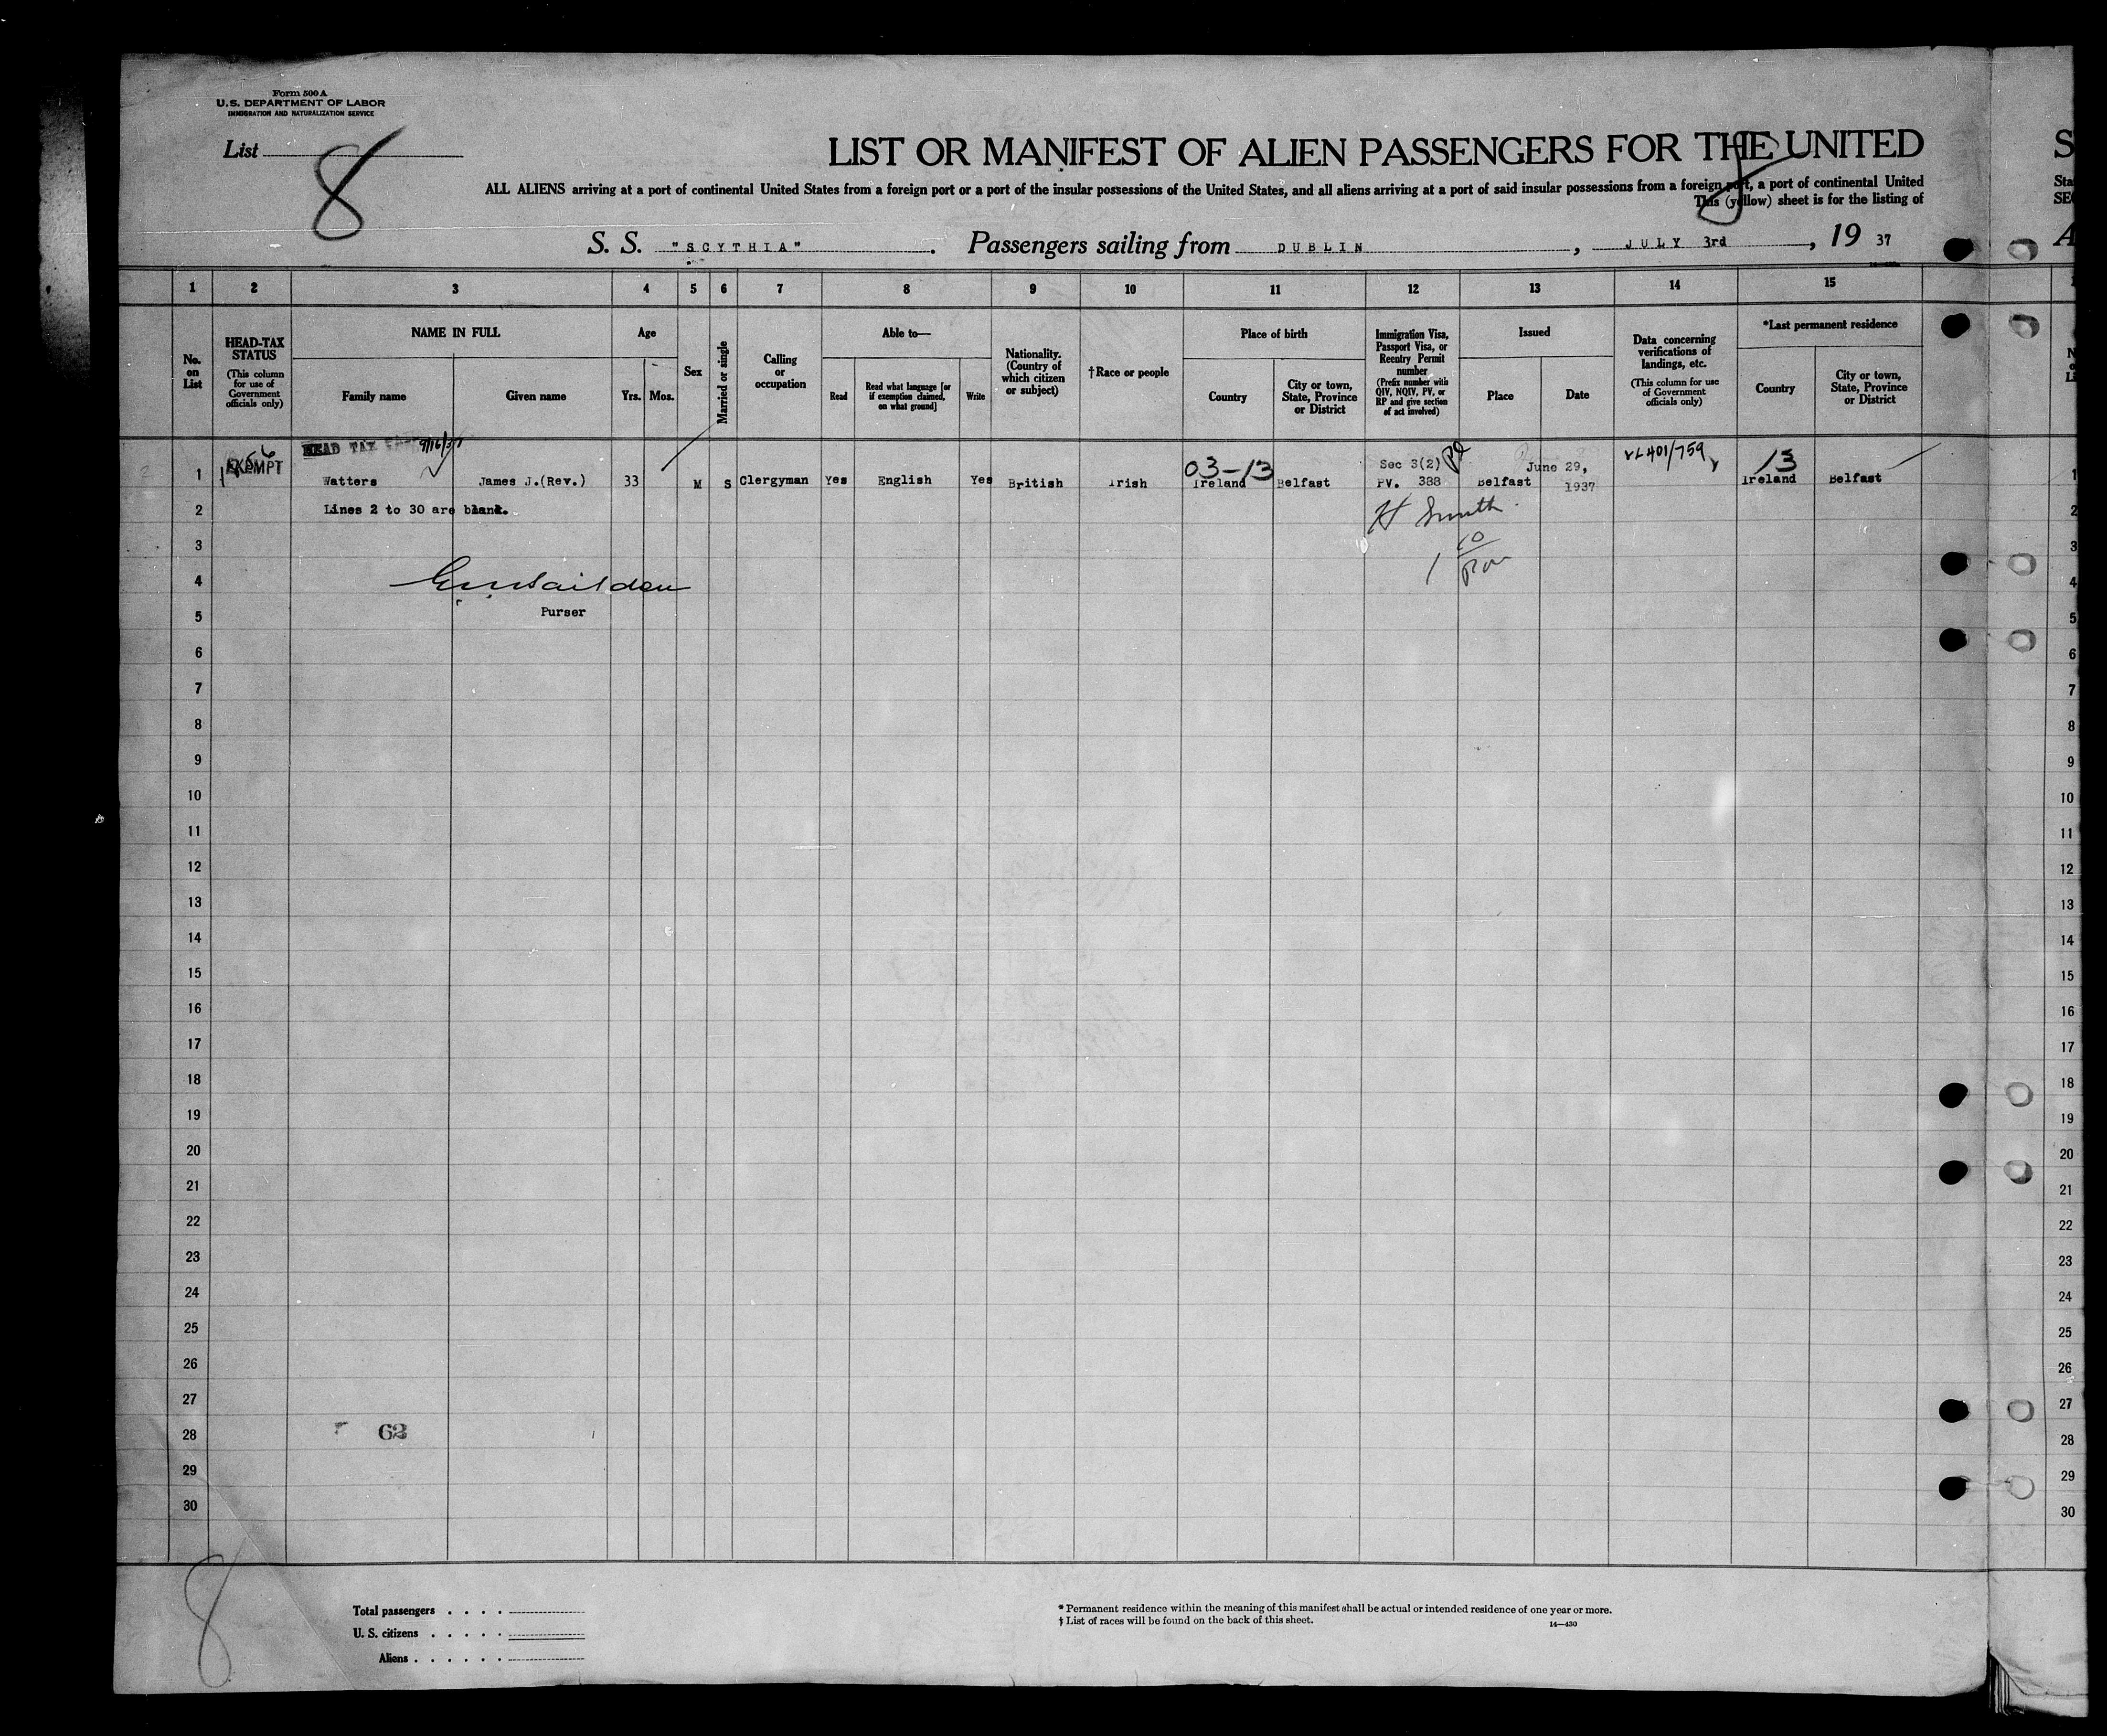 Form 500 A
U.S. DEPARTMENT OF LABOR
IMMIGRATION AND NATURALIZATION SERVICE
List 8
LIST OR MANIFEST OF ALIEN PASSENGERS FOR THE UNITED
S
8
ALL ALIENS arriving at a port of continental United States from a foreign port or a port of the insular possessions of the United States, and all aliens arriving at a port of said insular possessions from a foreign port, a port of continental United
Sta
This (yellow) sheet is for the listing of
SE
S. S. "SCYTHIA". Passengers sailing from DUBLIN, JULY 3rd, 19 37
A
1 2 3 4 5 6 7 8 9 10 11 12 13 14 15
No. on List
HEAD-TAX STATUS
(This column for use of Government officials only)
NAME IN FULL
Family name
Given name
Age
Yrs. Mos.
Sex
Married or single
Calling or occupation
Able to—
Read
Read what language [or if exemption claimed, on what ground]
Write
Nationality. (Country of which citizen or subject)
†Race or people
Place of birth
Country
City or town, State, Province or District
Immigration Visa, Passport Visa, or Reentry Permit number
(Prefix number with QIV, NQIV, PV, or RP and give section of act involved)
Issued
Place
Date
Data concerning verifications of landings, etc.
(This column for use of Government officials only)
*Last permanent residence
Country
City or town, State, Province or District
HEAD TAX 9/16/37
03-13 Sec 3(2) June 29, 13
1 EXEMPT Watters James J.(Rev.) 33 M S Clergyman Yes English Yes British Irish Ireland Belfast PV. 388 Belfast 1937 Ireland Belfast 1
2 Lines 2 to 30 are blank. H Smith 2
3 3
4 4
5 Purser 5
6 6
7 7
8 8
9 9
10 10
11 11
12 12
13 13
14 14
15 15
16 16
17 17
18 18
19 19
20 20
21 21
22 22
23 23
24 24
25 25
26 26
27 27
28 62 28
29 29
30 30
8
Total passengers . . . .
U. S. citizens . . . . .
Aliens . . . . . .
* Permanent residence within the meaning of this manifest shall be actual or intended residence of one year or more.
† List of races will be found on the back of this sheet.
14—430